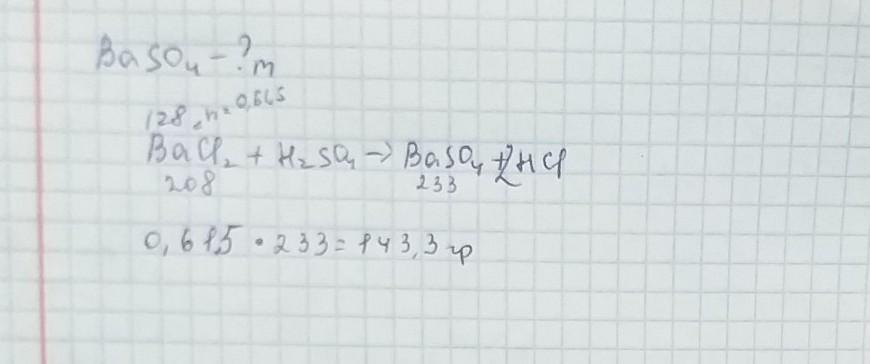 BaSO₄ - ? m
128 г n = 0,615
BaCl₂ + H₂SO₄ → BaSO₄ + 2HCl
208 233
0,615 • 233 = 143,3 гр